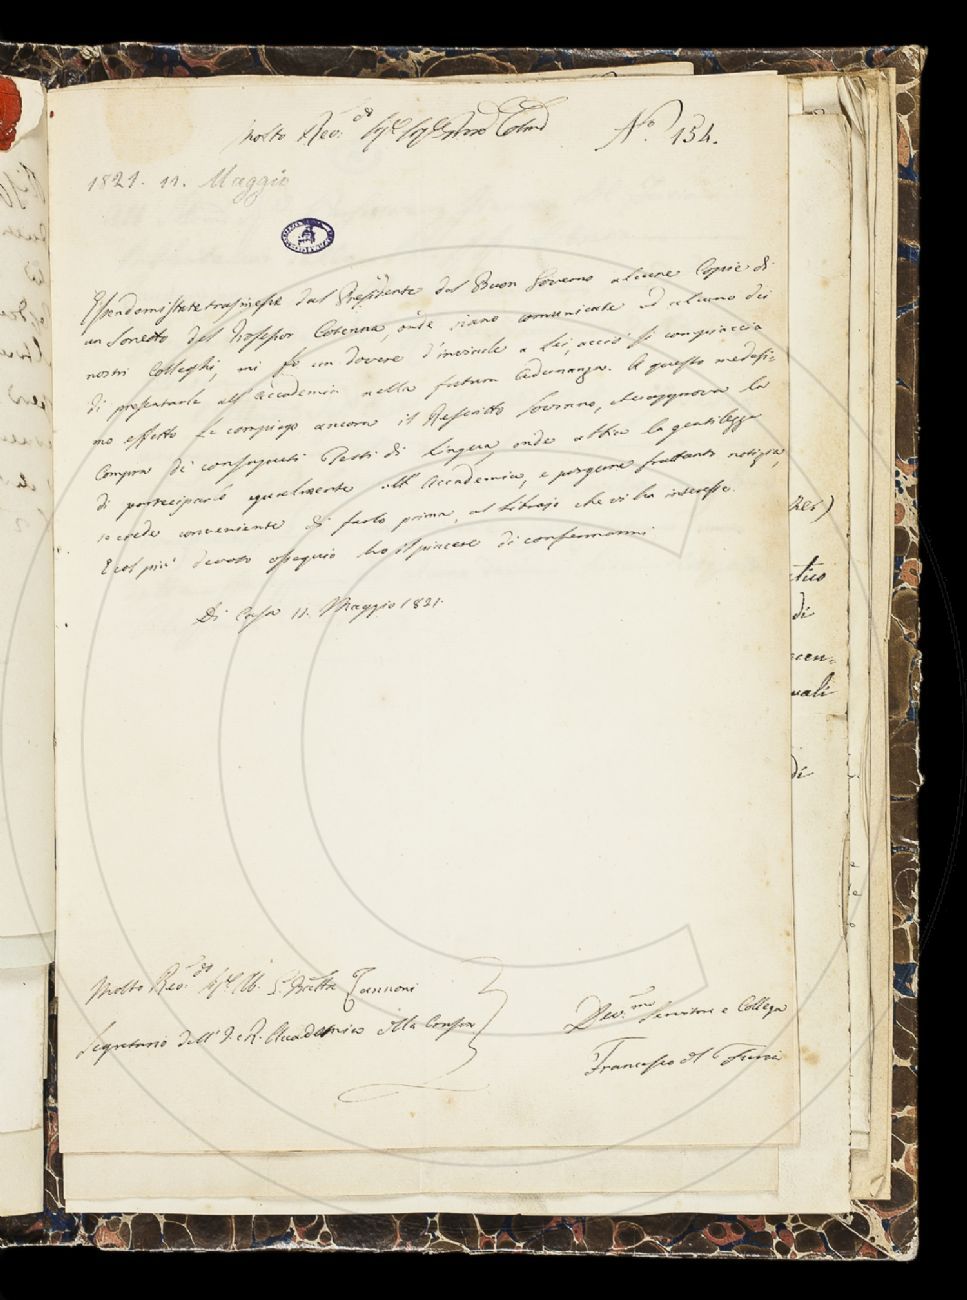 Molto Rev.do Sig.e Sig.e
N.o 154.
1821. 11. Maggio
Essendomi state trasmesse dal Presidente del Buon Governo alcune Copie di
un Sonetto del Professor Caterina, onde siano comunicate ad alcuno dei
nostri Colleghi, mi fo un dovere d'inviarle a Lei, acciò si compiaccia
di presentarle all'Accademia nella futura Adunanza. A questo medesi-
mo effetto Le compiego ancora il Rescritto Sovrano, che la
Compra de' consueti Testi di Lingua, onde abbia la gentilezza
di parteciparlo egualmente all'Accademia, e porgerne frattanto notizia,
se crede conveniente di farlo prima, al Libraio che vi ha interesse.
E col più devoto ossequio ho il piacere di confermarmi
Di Casa 11. Maggio 1821.
Molto Rev.do Sig.e Ab. Zannoni
Segretario dell'I. e R. Accademia della Crusca
Dev.mo Servitore e Collega
Francesco del Furia
di
di